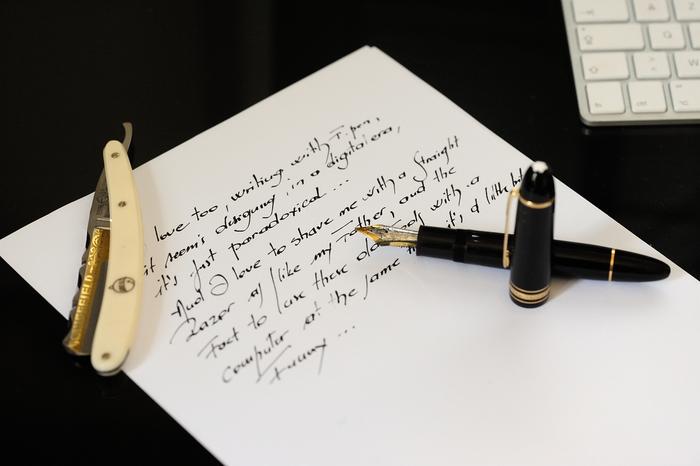 love too, writing with F. pen,
it seem's in a digital era,
it's just paradoxical ...
And I love to shave me with a straight
Razor (like my Father, and the
Fact to use these with a
computer at the same it's a little bit
Funny ...
A Z
Q
W